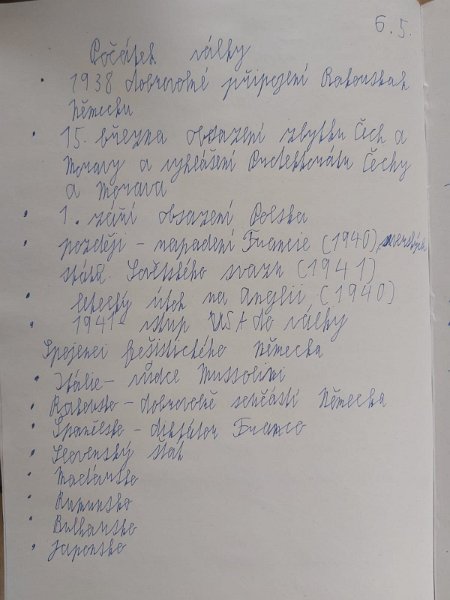 6.5.
Počátek války
• 1938 dobrovolné připojení Rakouska k
Německu
• 15. března obsazení zbytku Čech a
Moravy a vyhlášení Protektorátu Čechy
a Morava
• 1. září obsazení Polska
• později - napadení Francie (1940), severských
států. Sovětského svazu (1941)
• letecký útok na Anglii (1940)
• 1941 - vstup USA do války
Spojenci fašistického Německa
• Itálie - vůdce Mussolini
• Rakousko - dobrovolně součástí Německa
• Španělsko - diktátor Franco
• Slovenský stát
• Maďarsko
• Rumunsko
• Bulharsko
• Japonsko